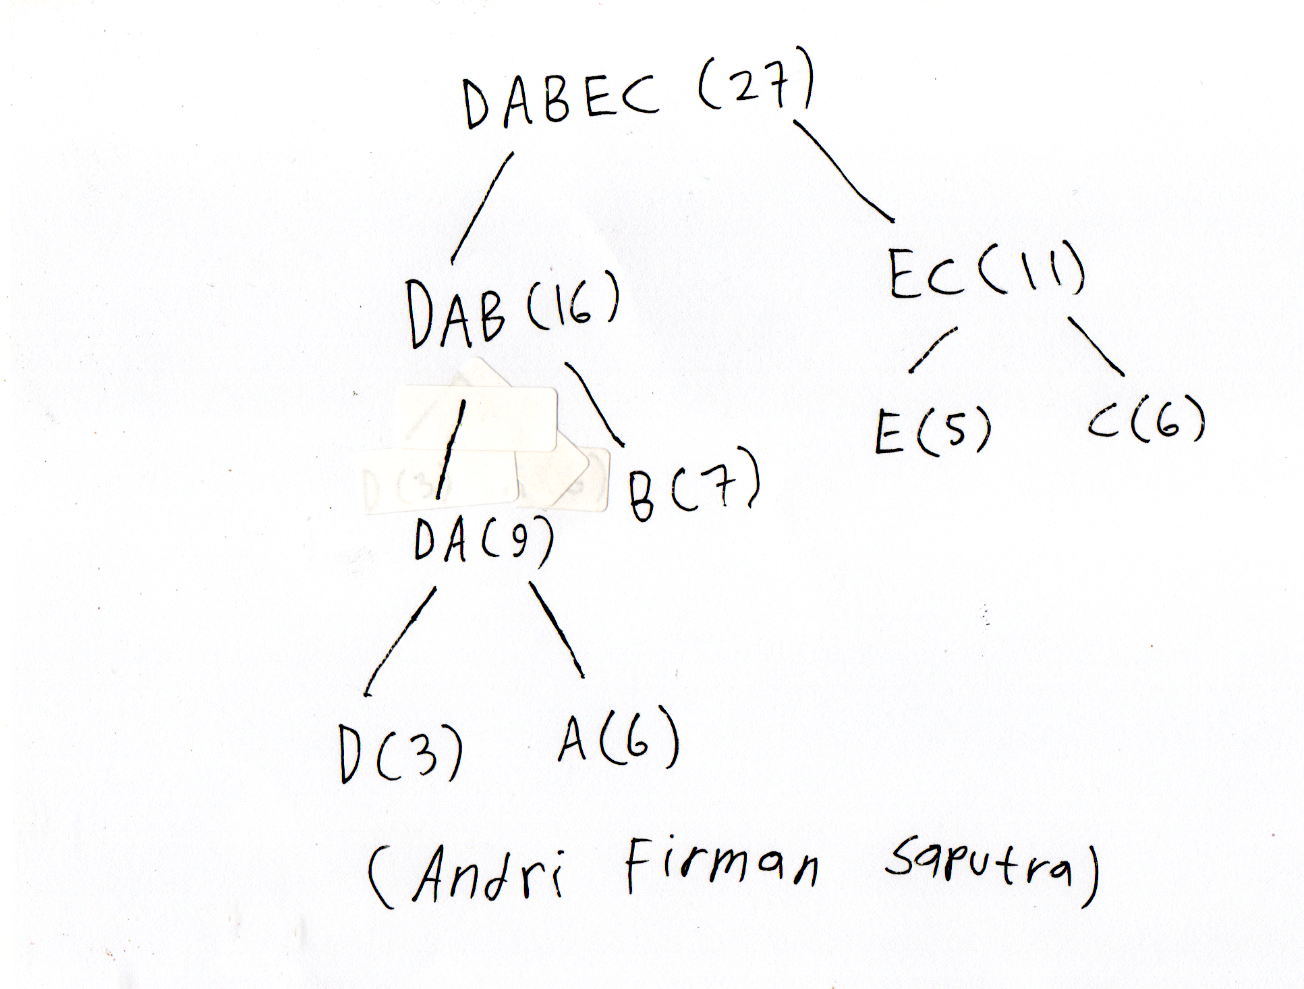 DABEC (27)
DAB (16)
EC (11)
E(5)
C(6)
D(3)
B(7)
DA(9)
D(3)
A(6)
(Andri Firman Saputra)